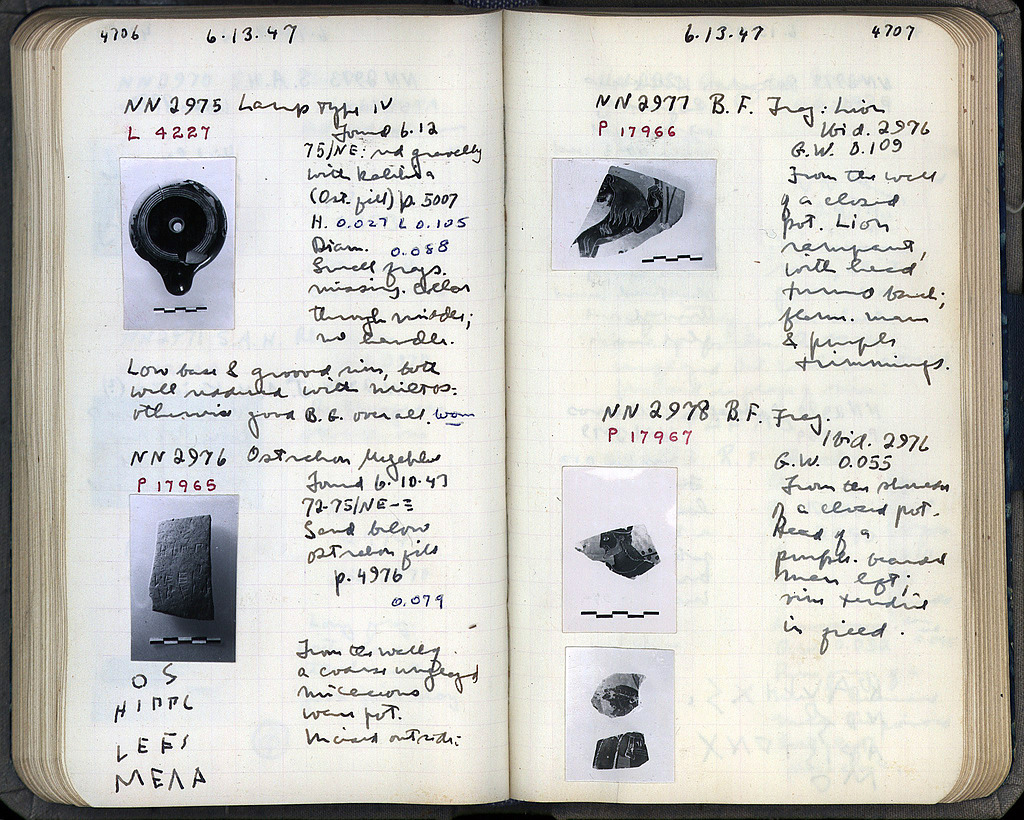 4706 6.13.47
NN 2975 Lamp Type IV
L 4227
Found 6.12
75/ΝΕ: red gravelly
with
(Ost. fill) p. 5007
H. 0.027 L 0.105
Diam. 0.088
Small frags.
missing.
through middle;
no handle.
Low base & grooved rim, both
well reserved with miltos:
otherwise good B.G. over all. worn
NN 2976 Ostrakon Megakles
P 17965
Found 6.10.47
72-75/ΝΕ-Ξ
Sand below
ostrakon fill
p. 4976
0.079
From the wall of
a coarse unglazed
micaceous
ware pot.
Incised outside:
OS
HIPPC
LEES
MEΛA
6.13.47 4707
NN 2977 B.F. Frag: Lion
P 17966
Ibid. 2976
G.W. 0.109
From the wall
of a closed
pot. Lion
rampant,
with head
turned back;
mane
& purple
trimmings.
NN 2978 B.F. Frag.
P 17967
Ibid. 2976
G.W. 0.055
From the shoulder
of a closed pot.
Head of a
purple bearded
man left;
vine tendril
in field.